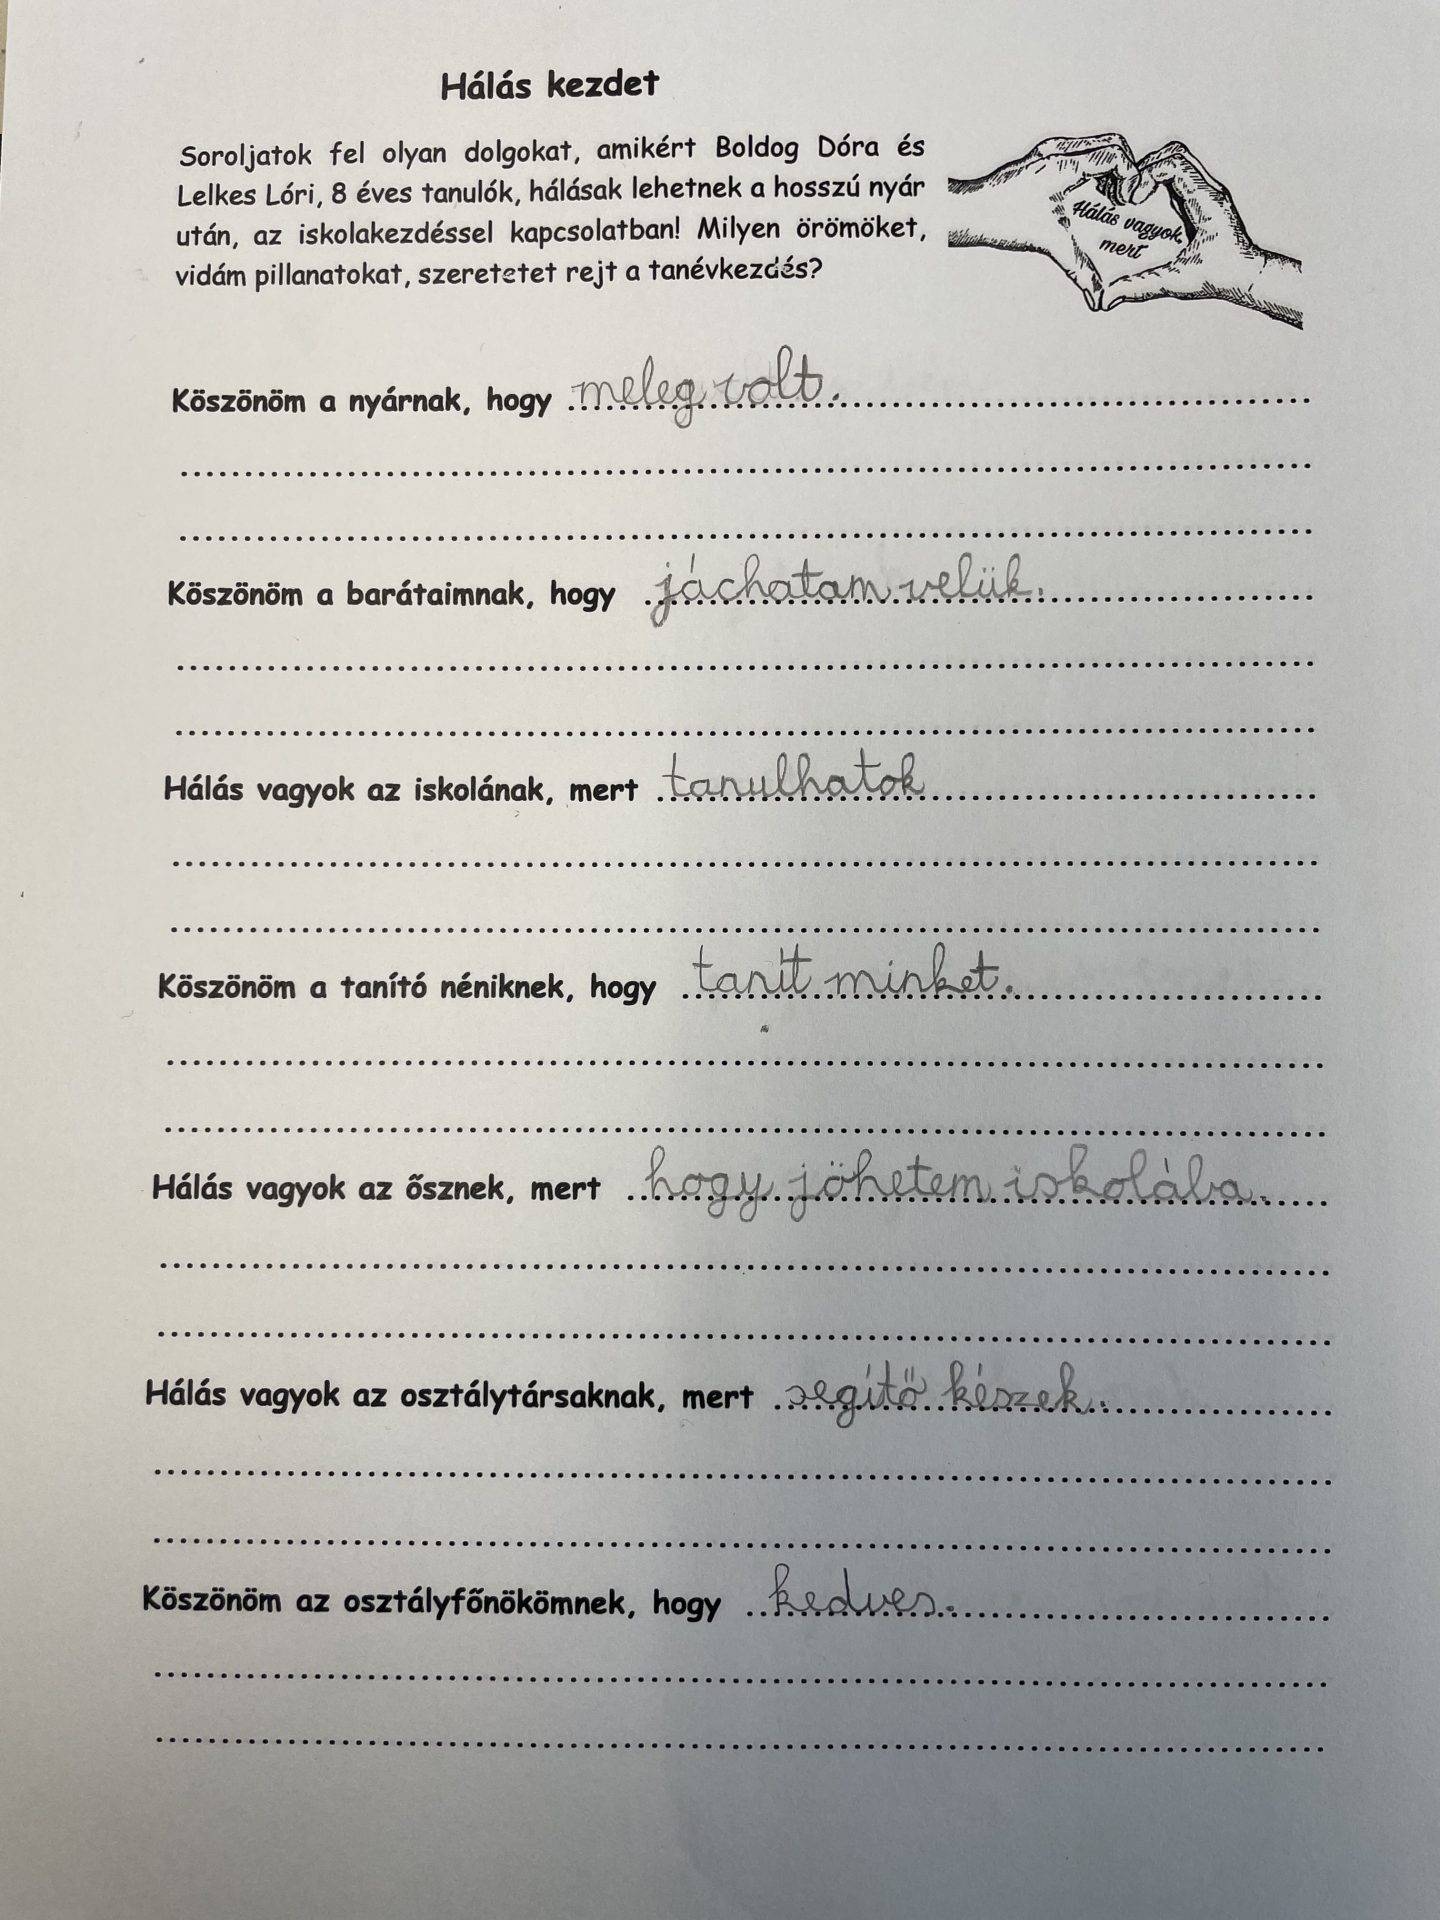 Hálás kezdet
Soroljatok fel olyan dolgokat, amikért Boldog Dóra és
Lelkes Lóri, 8 éves tanulók, hálásak lehetnek a hosszú nyár
után, az iskolakezdéssel kapcsolatban! Milyen örömöket,
vidám pillanatokat, szeretetet rejt a tanévkezdés?
Hálás vagyok,
mert
Köszönöm a nyárnak, hogy meleg volt.
Köszönöm a barátaimnak, hogy jáchatam velük.
Hálás vagyok az iskolának, mert tanulhatok
Köszönöm a tanító néniknek, hogy tanít minket.
Hálás vagyok az ősznek, mert hogy jöhetem iskolába.
Hálás vagyok az osztálytársaknak, mert segítő készek.
Köszönöm az osztályfőnökömnek, hogy kedves.